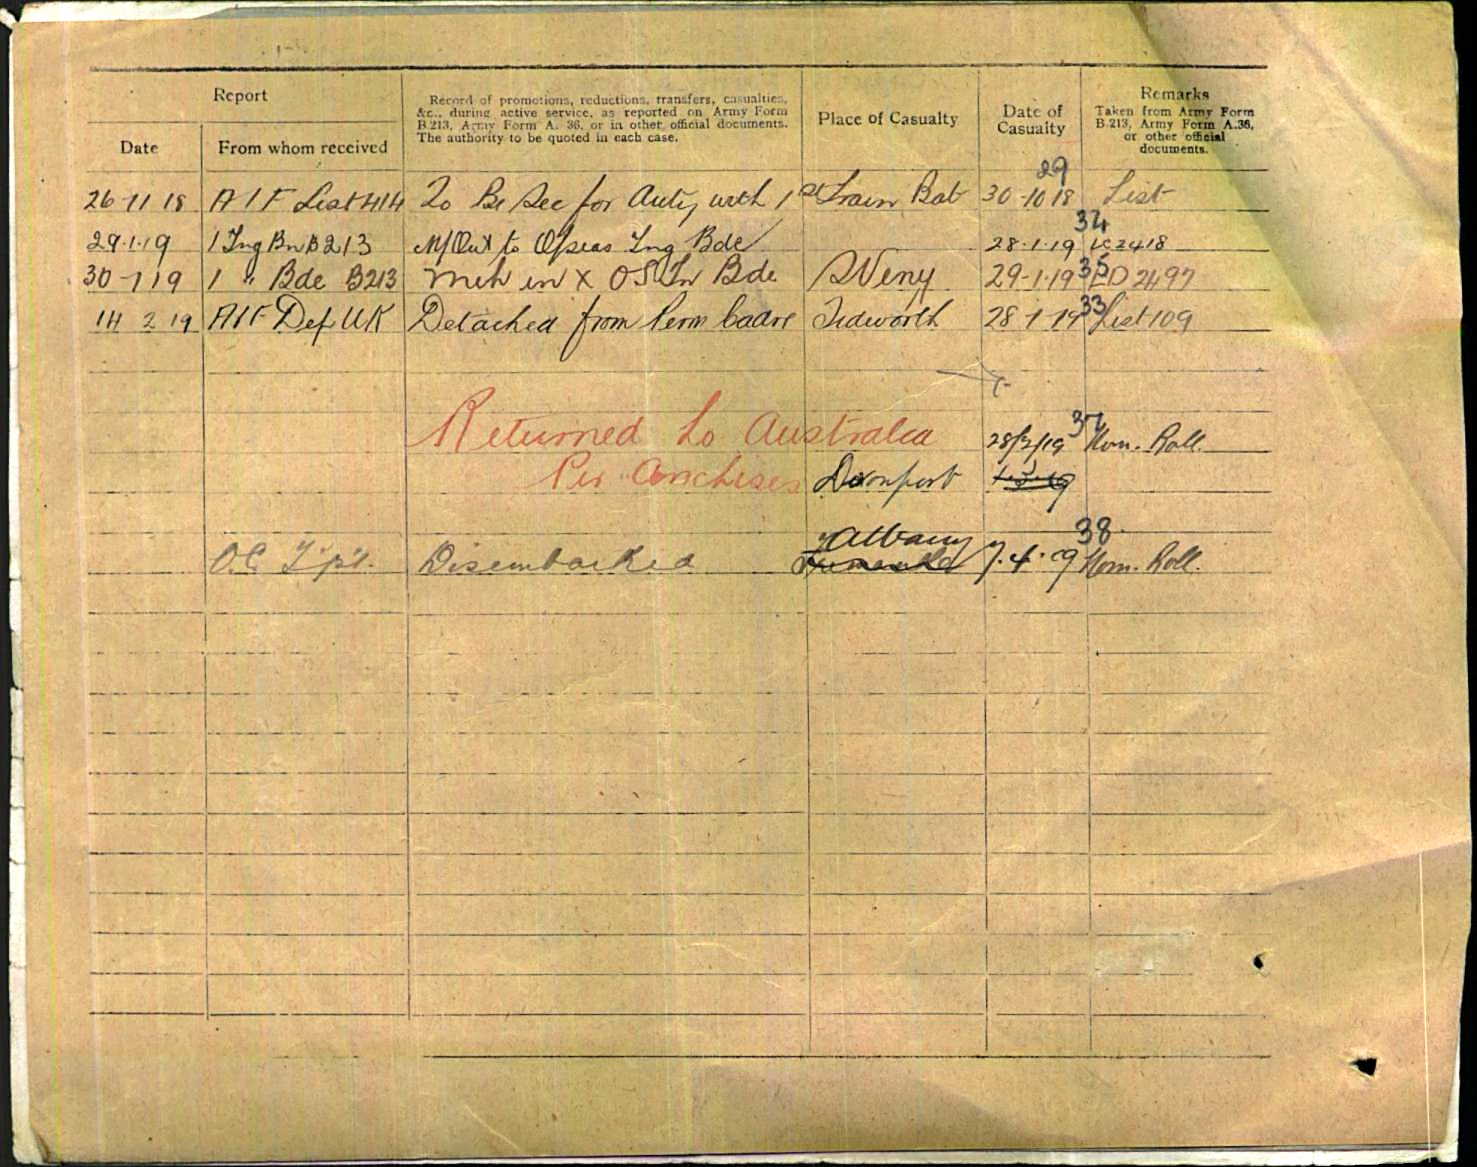 Report
Date
From whom received
Record of promotions, reductions, transfers, casualties,
&c., during active service, as reported on Army Form
B.213, Army Form A. 36, or in other official documents.
The authority to be quoted in each case.
Place of Casualty
Date of
Casualty
Remarks
Taken from Army Form
B.213, Army Form A.36,
or other official
documents.
29
26-11 18 AIF List 414 To Be Sec for duty with 1st Train Bat 30-10 18 List
34
29.1.19 1 Tng Bn B213 M/Out to O/seas Tng Bde 28.1.19 2418
35
30-1 19 1 " Bde B213 Mch in X OS Tn Bde SVeny 29-1-19 2497
33
14 2 19 AIF Dep UK Detached from Perm Cadre Tidworth 28 1 19 List 109
37
Returned to Australia 28/2/19 Nom. Roll.
Per Anchises Devonport
38
Albany
O.C. T'pt. Disembarked Fremantle 7.4.19 Nom. Roll.